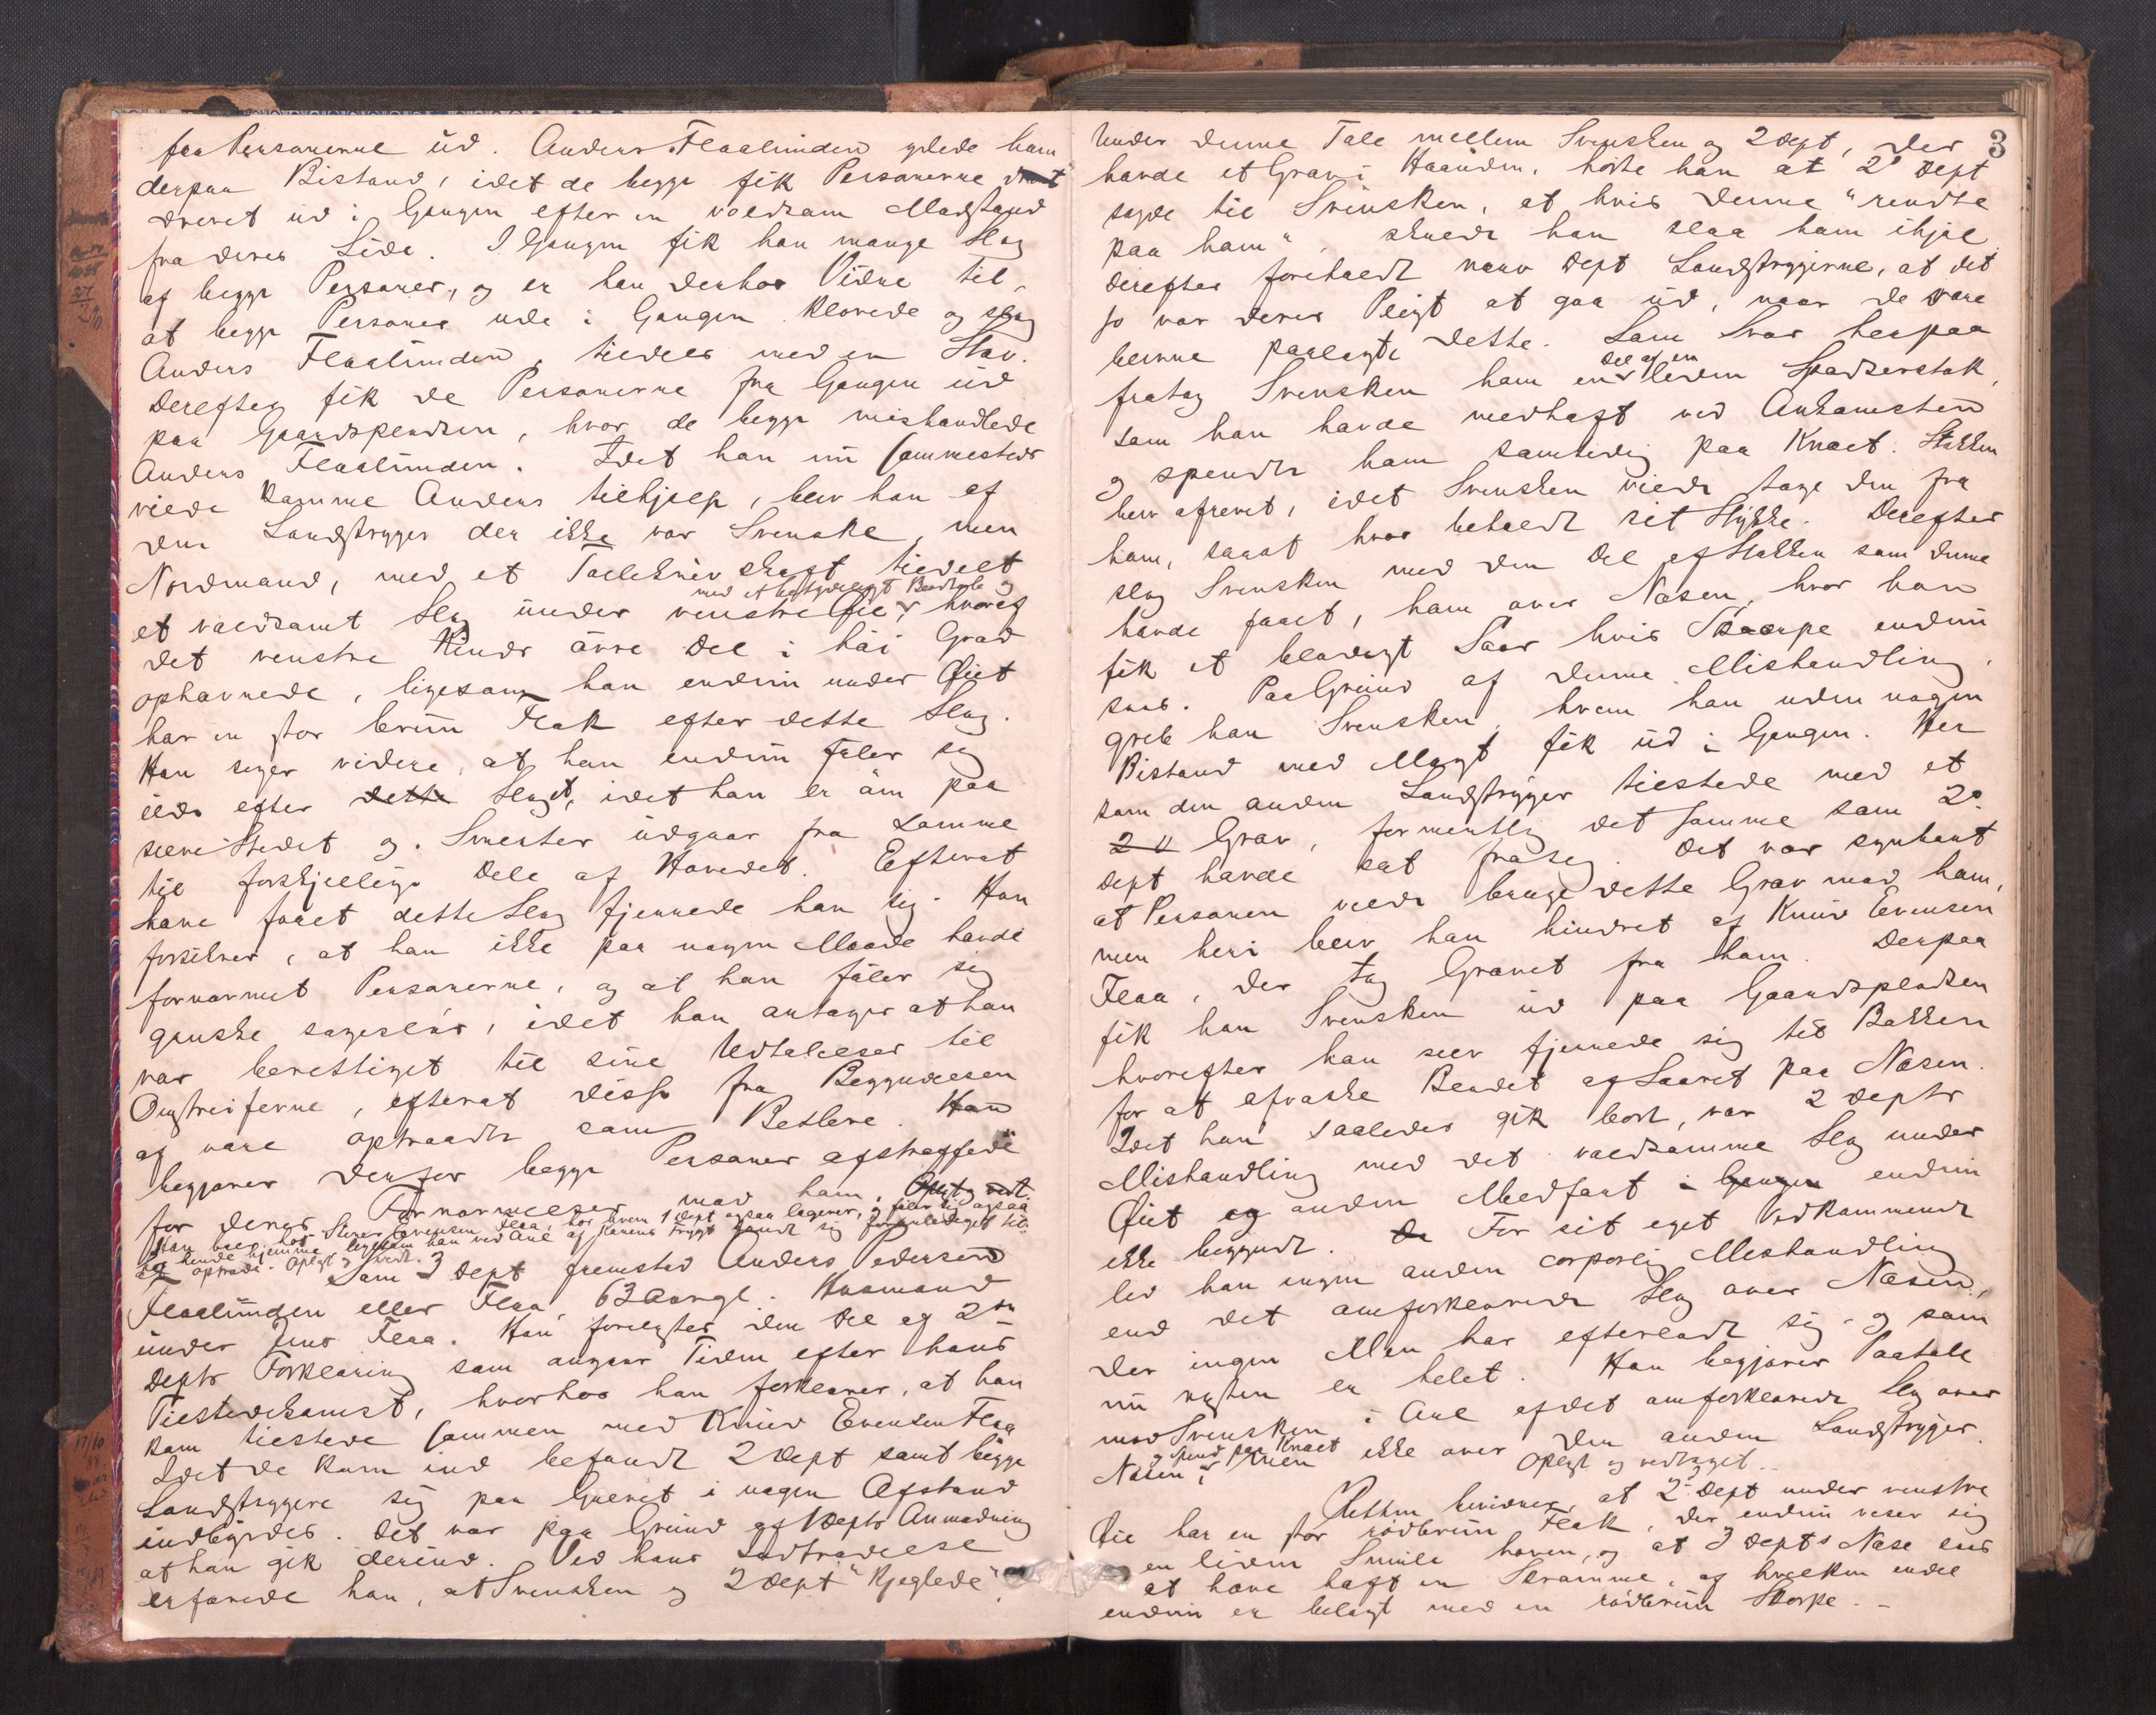 fra Personerne ud. Anders Flaalunden ydede ham
derpaa Bistand, idet de begge fik Personerne
drevet ud i Gangen efter en voldsom Modstand
fra deres Side. I Gangen fik han mange Slag
af begge Personer, og er han derhos Vidne til,
at begge Personer ude i Gangen klorede og slog
Anders Flaalunden, tildels med en Stav.
Derefter fik de Personerne fra Gangen ud
paa Gaardspladsen, hvor de begge mishandlede
Anders Flaalunden. Idet han nu sammesteds
vilde komme Anders tilhjælp, blev han af
den Landstryger der ikke var Svenske, men
Nordmand, med et Tollekniv skaft tildelt
med et betydeligt Blodtab og
et voldsomt Slag under venstre Øie, hvoraf
det venstre Kinds øvre Del i høi Grad
ophovnede, ligesom han endnu under Øiet
har en stor brun Flek efter dette Slag.
Han siger videre, at han endnu føler sig
ilde efter dette Slaget, idet han er øm paa
selve Stedet og Smerter udgaar fra samme
til forskjellige Dele af Hovedet. Efterat
have faaet dette Slag fjernede han sig. Han
forsikrer, at han ikke paa nogen Maade havde
fornærmet Personerne, og at han føler sig
ganske sagesløs, idet han antager at han
var berettiget til sine Udtalelser til
Omstreiferne, efterat disse fra Begyndelsen
af vare optraadte som Betlere. Han
begjærer derfor begge Personer afstraffede
for deres Fornærmelser mod ham. Oplæst og vedt.
Han boer hos Stener Evensen Flaa, hos hvem 1 Dept ogsaa logerer, og føler sig ogsaa
for hende hjemme ligesom han ved Anl. af Konens Frygt fandt sig foranlediget til
at optræde. Oplæst og vedt.
Som 3 Dept fremstod Anders Pedersen
Flaalunden eller Flaa, 63 Aar gl. Husmand
under Jens Flaa. Han forelagtes den Del af 2den
Depts Forklaring som angaar Tiden efter hans
Tilstedekomst, hvorhos han forklarer, at han
kom tilstede sammen med Knud Evensen Flaa
Idet de kom ind befandt 2 Dept samt begge
Landstrygere sig paa Gulvet i nogen Afstand
indbyrdes. Det var paa Grund af 1 Depts Anmodning
at han gik derind. Ved hans Indtrædelse
erfarede han, at Svensken og 2 Dept "kjeglede".
3
Under denne Tale mellem Svensken og 2 Dept, der
havde et Grev i Haanden, hørte han at 2 Dept
sagde til Svensken, at hvis denne "rendte
paa ham", skulde han slaa ham ihjel
derefter foreholdt nærv Dept Landstrygerne, at det
jo var deres Pligt at gaa ud, naar de vare
blevne paalagte dette. Som Svar herpaa
Del af en
fratog Svensken ham en liden Spadserstok,
som han havde medhaft ved Ankomsten
og spendte ham samtidig paa Knæet. Stokken
blev afrevet, idet Svensken vilde tage den fra
ham, saaat hver beholdt sit Stykke. Derefter
slog Svensken med den Del af Stokken som denne
havde faaet, ham over Næsen, hvor han
fik et blodigt Saar hvis Skorpe endnu
saaes. Paa Grund af denne Mishandling
greb han Svensken, hvem han uden nogen
Bistand med Magt fik ud i Gangen. Her
kom den anden Landstryger tilstede med et
2 Grev, formentlig det samme som 2
Dept havde sat fra sig. Det var synbart
at Personen vilde bruge dette Grev mod ham,
men heri blev han hindret af Knud Evensen
Flaa, der tog Grevet fra ham. Derpaa
fik han Svensken ud paa Gaardspladsen
hvorefter han selv fjernede sig til Bækken
for at afvaske Blodet af Saaret paa Næsen.
Idet han saaledes gik bort, var 2 Depts
Mishandling med det voldsomme Slag under
Øiet og anden Medfart i Gangen endnu
ikke begyndt. For sit eget Vedkommende
led han ingen anden corporlig Mishandling
end det omforklarede Slag over Næsen,
der ingen Men har efterladt sig og som
nu næsten er helet. Han begjærer Paatale
mod Svensken i Anl. af det omforklarede Slag over
og Spend paa Knæet
Næsen, men ikke over den anden Landstryger.
Oplæst og vedtaget.
Retten bevidner, at 2 Dept under venstre
Øie har en stor rødbrun Flek, der endnu viser sig
en liden Smule hoven, og at 3 Depts Næse sees
at have haft en Skramme, af hvilken endel
endnu er belagt med en rødbrun Skorpe.